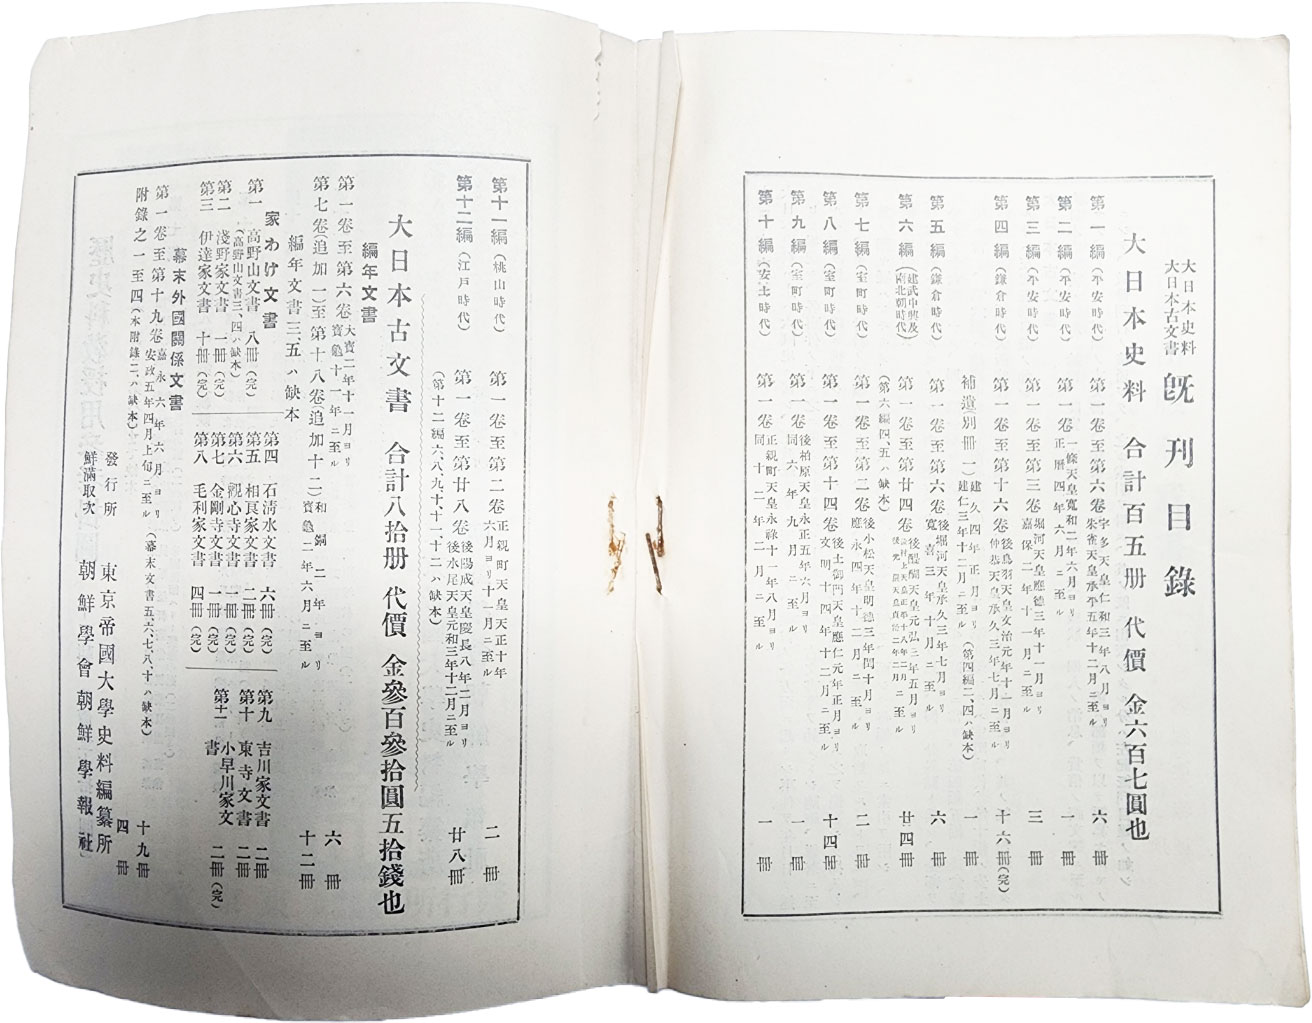 大日本史料
大日本古文書
既刊目錄
大日本史料 合計百五册 代價 金六百七圓也
第一編(平安時代) 第一卷至第六卷 宇多天皇仁和三年八月ヨリ 朱雀天皇承平五年十二月ニ至ル 六冊
第二編(平安時代) 第一卷 一條天皇寬和二年六月ヨリ 正曆四年六月ニ至ル 一冊
第三編(平安時代) 第一卷至第三卷 堀河天皇應德三年十一月ヨリ 嘉保二年十一月ニ至ル 三冊
第四編(鎌倉時代) 第一卷至第十六卷 後鳥羽天皇文治元年十一月ヨリ 仲恭天皇承久三年七月ニ至ル 十六冊(完)
補遺別冊一) 建久四年正月ヨリ 建仁三年十二月ニ至ル (第四編二、四ハ缺本) 一冊
第五編(鎌倉時代) 第一卷至第六卷 後堀河天皇承久三年七月ヨリ 寬喜三年十月ニ至ル 六冊
第六編(建武中興及南北朝時代) 第一卷至第廿四卷 後醍醐天皇元弘三年五月ヨリ 廿四冊
(第六編四、五ハ缺本)
第七編(室町時代) 第一卷至第二卷 後小松天皇明德三年閏十月ヨリ 應永四年十二月ニ至ル 二冊
第八編(室町時代) 第一卷至第十四卷 後土御門天皇應仁元年正月ヨリ 文明十四年十二月ニ至ル 十四冊
第九編(室町時代) 第一卷 後柏原天皇永正五年六月ヨリ 同六年九月ニ至ル 一冊
第十編(安土時代) 第一卷 正親町天皇永祿十一年八月ヨリ 同十二年二月ニ至ル 一冊
第十一編(桃山時代) 第一卷至第二卷 正親町天皇天正十年六月ヨリ十一月ニ至ル 二冊
第十二編(江戶時代) 第一卷至第廿八卷 後陽成天皇慶長八年二月ヨリ 後水尾天皇元和三年十二月ニ至ル 廿八冊
(第十二編六、八、九、十、十一、十二ハ缺本)
大日本古文書 合計八拾册 代價 金參百參拾圓五拾錢也
編年文書
第一卷至第六卷 大寶二年十一月ヨリ 寶龜十一年ニ至ル 六冊
第七卷(追加一)至第十八卷追加十二) 和銅二年ヨリ 寶龜二年六月ニ至ル 十二冊
編年文書三、五ハ缺本
家わけ文書
第一 高野山文書 八冊(完)
(高野山文書三、四ハ缺本)
第二 淺野家文書 一冊(完)
第三 伊達家文書 十冊(完)
第四 石清水文書 六冊(完)
第五 相良家文書 二冊(完)
第六 觀心寺文書 一冊(完)
第七 金剛寺文書 一冊(完)
第八 毛利家文書 四冊(完)
第九 吉川家文書 二冊
第十 東寺文書 二冊
第十一 小早川家文書 二冊(完)
幕末外國關係文書
第一卷至第十九卷 嘉永六年六月ヨリ 安政五年四月上旬ニ至ル (幕末文書五六、七八、十ハ缺本) 十九冊
附錄之一至四(本附錄二、ハ缺本) 四冊
發行所 東京帝國大學史料編纂所
鮮滿取次 朝鮮學會朝鮮學報社